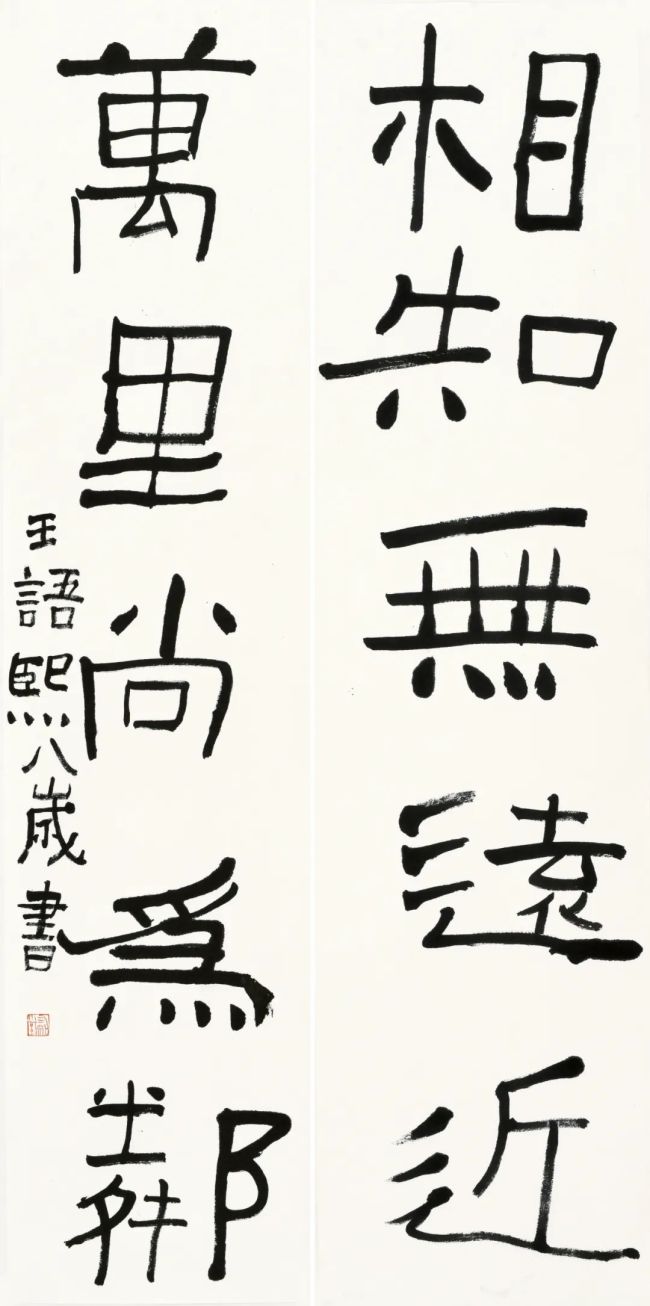 相知無遠近
萬里尚爲鄰
王語熙八歲書